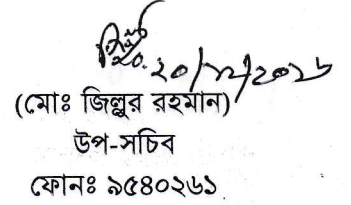 ২০/১২/২০১৬
(মোঃ জিল্লুর রহমান)
উপ-সচিব
ফোনঃ ৯৫৪০২৬১